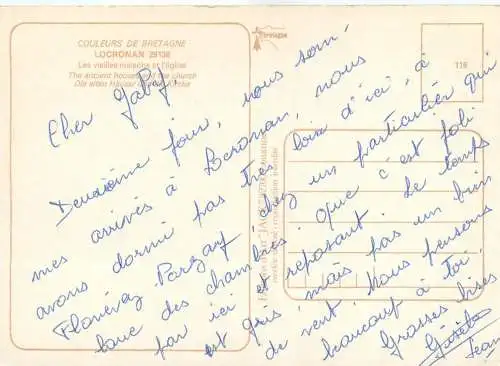 COULEURS DE BRETAGNE
LOCRONAN 29136
Les vieilles maisons et l'église
The ancient houses and the church
Die alten Häuser und die Kirche
Bretagne
116
Cher
Deuxième jour, nous som-
mes arrivés à Locronan, nous
avons dormi pas très loin d'ici, à
Plonévez-Porzay chez un particulier qui
loue des chambres. Que c'est joli
par ici et reposant. Le temps
est gris, mais pas un brin
de vent. Nous pensons
beaucoup à toi.
Grosses bises
Jean